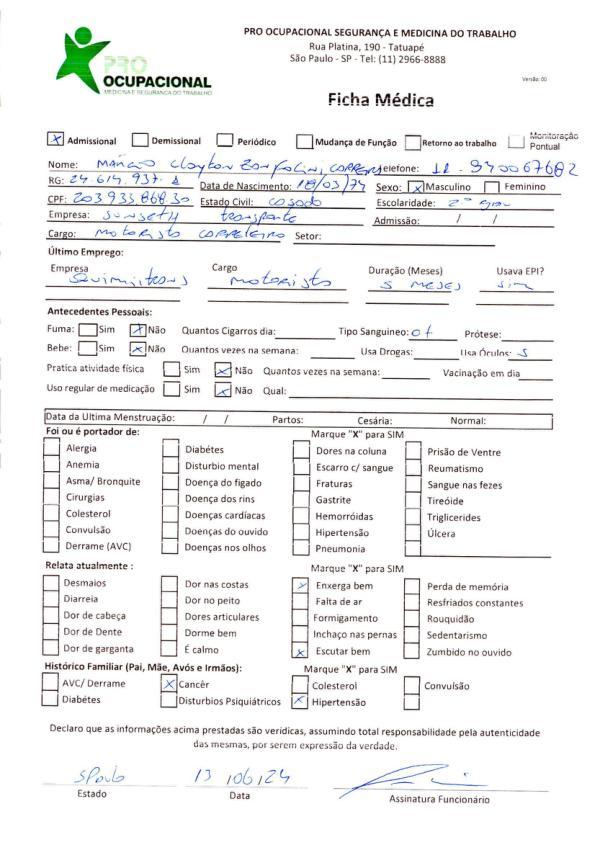 PRO OCUPACIONAL SEGURANÇA E MEDICINA DO TRABALHO
Rua Platina, 190 - Tatuapé
São Paulo - SP - Tel: (11) 2966-8888
PRO
OCUPACIONAL
MEDICINA E SEGURANÇA DO TRABALHO
Versão: 00
Ficha Médica
X Admissional Demissional Periódico Mudança de Função Retorno ao trabalho Monitoração Pontual
Nome: Márcio Clayton Correa Telefone: 11- 940067682
RG: 24 614 937- Data de Nascimento: 18/03/74 Sexo: X Masculino Feminino
CPF: 203 933 868 30 Estado Civil: cosodo Escolaridade: 2º grau
Empresa: Sunseth transporte Admissão: / /
Cargo: motoristo correteiro Setor:
Último Emprego:
Empresa Cargo Duração (Meses) Usava EPI?
Quimitrans motoristo 5 meses sim
Antecedentes Pessoais:
Fuma: Sim X Não Quantos Cigarros dia: Tipo Sanguineo: o+ Prótese:
Bebe: Sim X Não Quantos vezes na semana: Usa Drogas: Usa Óculos: S
Pratica atividade física Sim X Não Quantos vezes na semana: Vacinação em dia
Uso regular de medicação Sim X Não Qual:
Data da Ultima Menstruação: / / Partos: Cesária: Normal:
Foi ou é portador de: Marque "X" para SIM
Alergia Diabétes Dores na coluna Prisão de Ventre
Anemia Disturbio mental Escarro c/ sangue Reumatismo
Asma/ Bronquite Doença do figado Fraturas Sangue nas fezes
Cirurgias Doença dos rins Gastrite Tireóide
Colesterol Doenças cardíacas Hemorróidas Triglicerides
Convulsão Doenças do ouvido Hipertensão Úlcera
Derrame (AVC) Doenças nos olhos Pneumonia
Relata atualmente : Marque "X" para SIM
Desmaios Dor nas costas X Enxerga bem Perda de memória
Diarreia Dor no peito Falta de ar Resfriados constantes
Dor de cabeça Dores articulares Formigamento Rouquidão
Dor de Dente Dorme bem Inchaço nas pernas Sedentarismo
Dor de garganta É calmo X Escutar bem Zumbido no ouvido
Histórico Familiar (Pai, Mãe, Avós e Irmãos): Marque "X" para SIM
AVC/ Derrame X Cancêr Colesterol Convulsão
Diabétes Disturbios Psiquiátricos X Hipertensão
Declaro que as informações acima prestadas são verídicas, assumindo total responsabilidade pela autenticidade
das mesmas, por serem expressão da verdade.
SPaulo 13/06/24
Estado Data Assinatura Funcionário